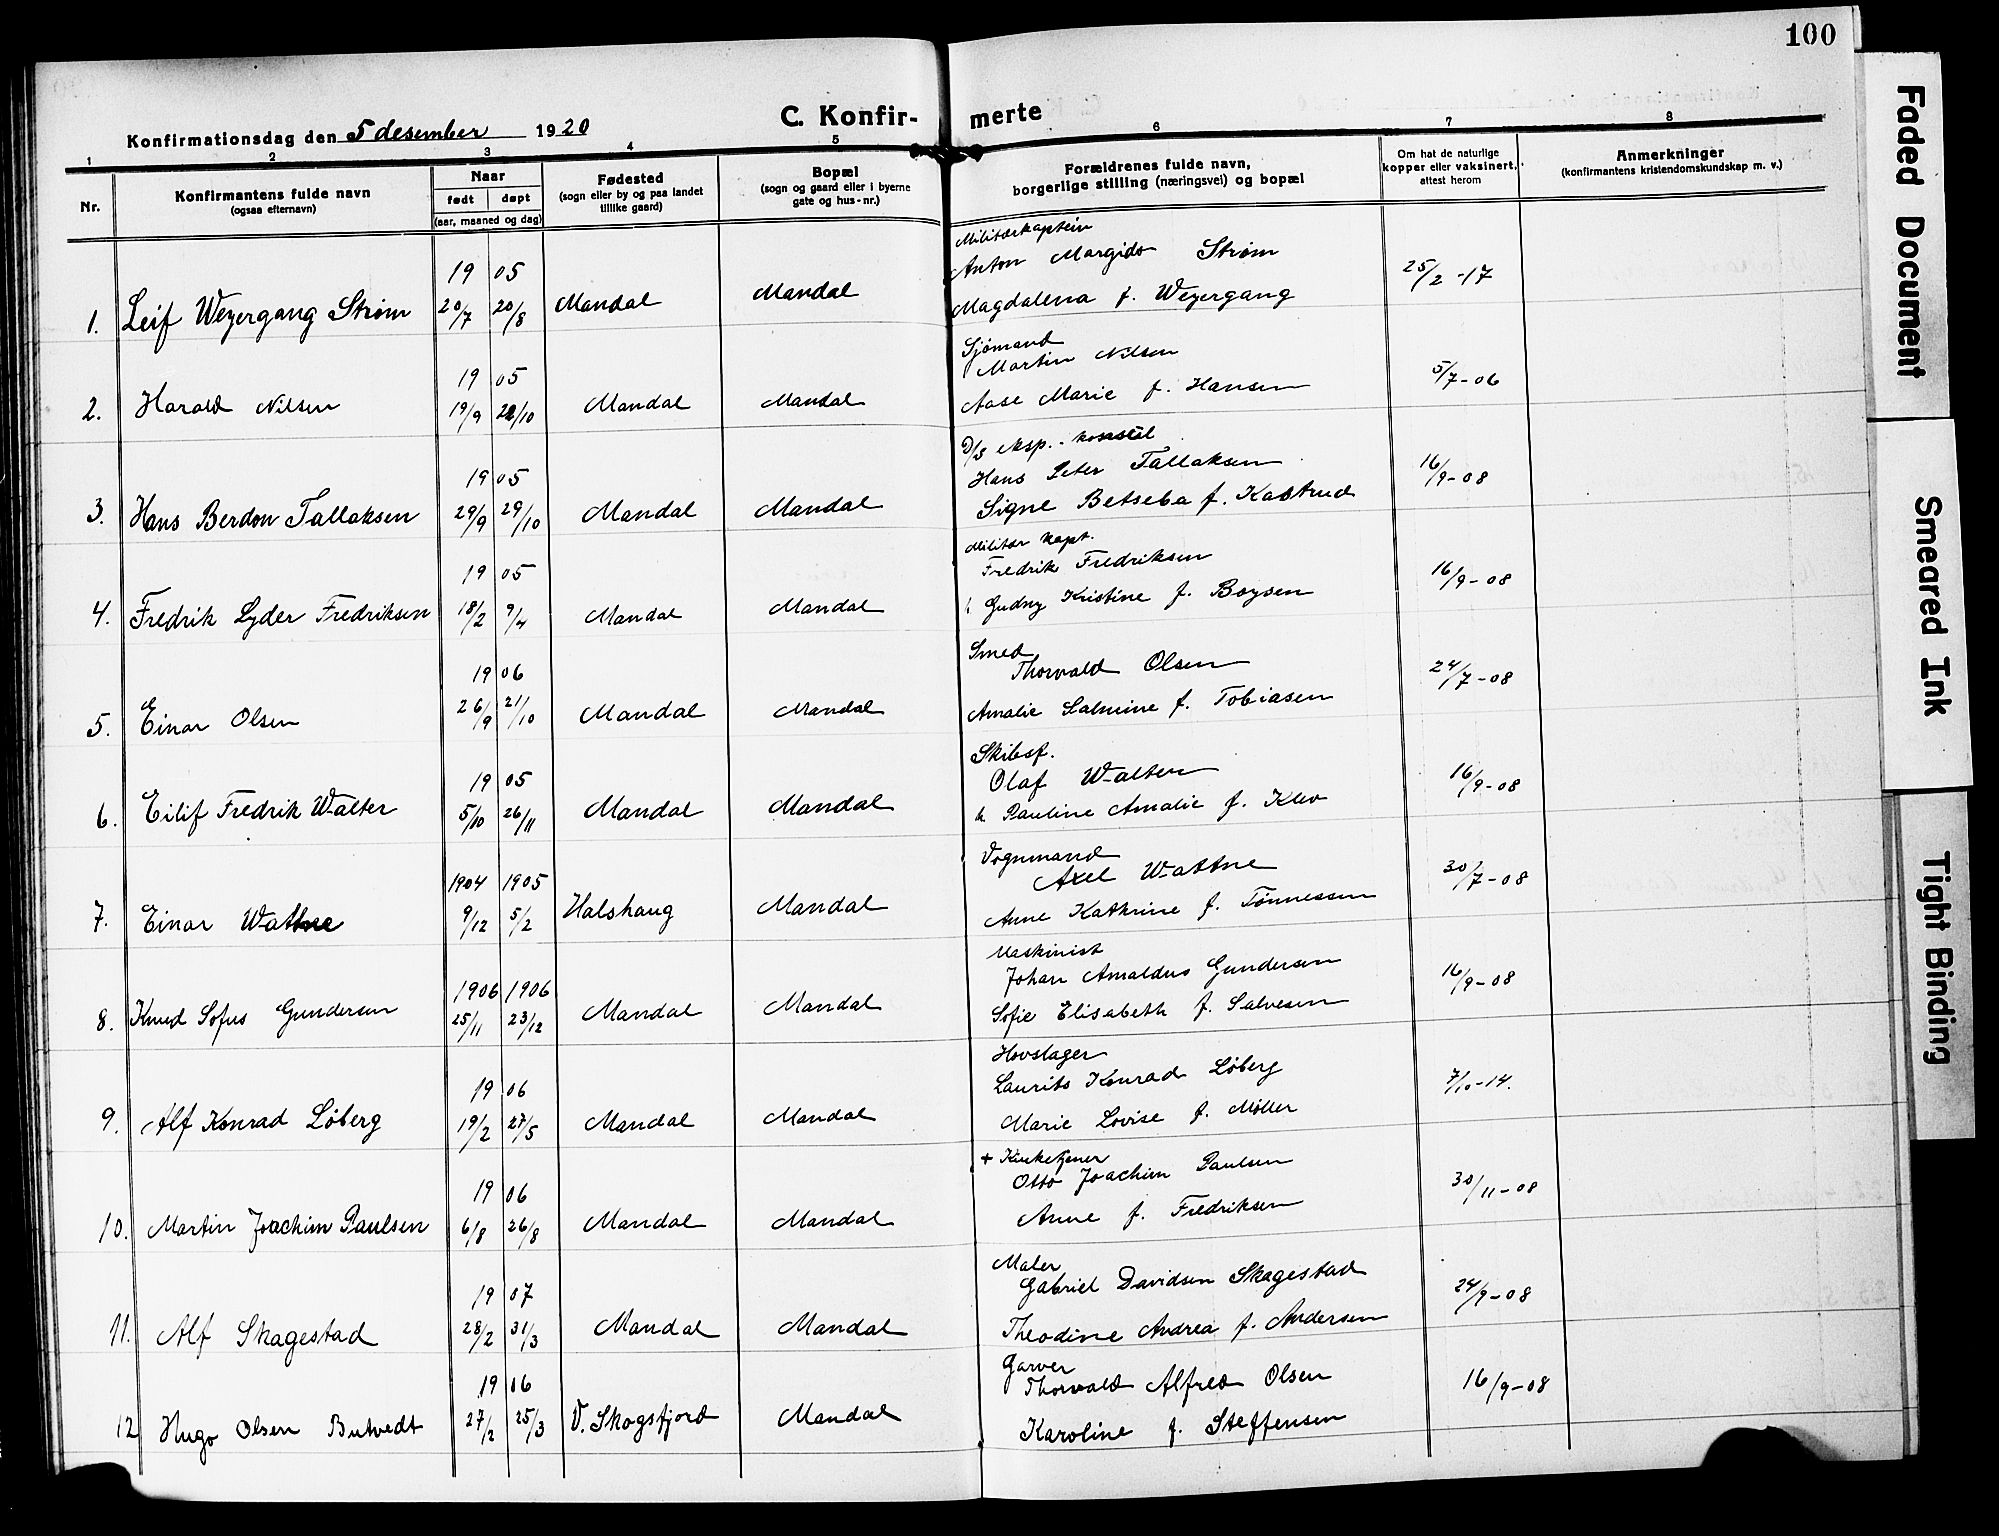 100
C. Konfirmerte
Konfirmationsdag den 5 desember 1920
1 2 3 4 5 6 7 8
Nr.
Konfirmantens fulde navn
(ogsaa efternavn)
Naar
født døpt
(aar, maaned og dag)
Fødested
(sogn eller by og paa landet
tillike gaard)
Bopæl
(sogn og gaard eller i byerne
gate og hus-nr.)
Forældrenes fulde navn,
borgerlige stilling (næringsvei) og bopæl
Om hat de naturlige
kopper eller vaksinert,
attest herom
Anmerkninger
(konfirmantens kristendomskundskap m. v.)
Militærkaptein
19 05 Anton Margido Strøm
1. Leif Weyergang Strøm 20/7 20/8 Mandal Mandal Magdalena f. Weyergang 25/2 -17
Sjömand
19 05 Martin Nilsen
2. Harald Nilsen 19/9 22/10 Mandal Mandal Aase Marie f. Hansen 5/7-06
D/S eksp.
19 05 Hans Peter Tallaksen
3. Hans Berdon Tallaksen 29/9 29/10 Mandal Mandal Signe Betseba f. Kastrud 16/9-08
Militær kapt.
19 05 Fredrik Fredriksen
4. Fredrik Lyder Fredriksen 18/2 9/4 Mandal Mandal Gudny Kristine f. Boysen 16/9-08
Smed
19 06 Thorvald Olsen
5. Einar Olsen 26/9 21/10 Mandal Mandal Amalie Salmine f. Tobiasen 24/7-08
Skibsf.
19 05 Olaf Walter
6. Eilif Fredrik Walter 5/10 26/11 Mandal Mandal h. Pauline Amalie f. Klev 16/9-08
Vognmand
1904 1905 Axel Wattne
7. Einar Wattne 9/12 5/2 Halshaug Mandal Anne Kathrine f. Tønnessen 30/7-08
Maskinist
1906 1906 Johan Arnaldus Gundersen
8. Knud Sofus Gundersen 25/11 23/12 Mandal Mandal Sofie Elisabeth f. Salvesen 16/9-08
Hovslager
19 06 Laurits Konrad Löberg
9. Alf Konrad Löberg 19/2 27/5 Mandal Mandal Marie Lovise f. Møller 7/10-14.
+ Kirketjener
19 06 Otto Joachim Paulsen
10. Martin Joachim Paulsen 6/8 26/8 Mandal Mandal Anne f. Fredriksen 30/11-08
Maler
19 07 Gabriel Davidsen Skagestad
11. Alf Skagestad 28/2 31/3 Mandal Mandal Theodine Andrea f. Andersen 24/9-08
Garver
19 06 Thorvald Alfred Olsen
12 Hugo Olsen Butvedt 27/2 25/3 V. Skogsfjord Mandal Karoline f. Steffensen 16/9-08
Faded Document
Smeared Ink
Tight Binding